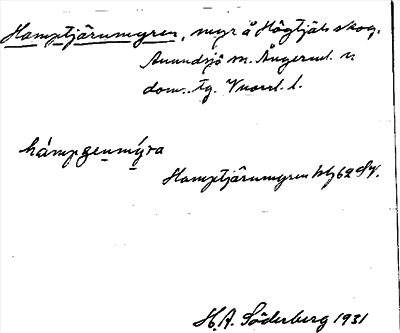 Hamptjärnmyren, myr å Högtjäls skog,
Anundsjö sn. Ångerml. n
dom. tg. Vnorrl. l.
hámpȩnmýra
Hamptjärnmyren blg 62 Sy.
H.A. Söderberg 1931